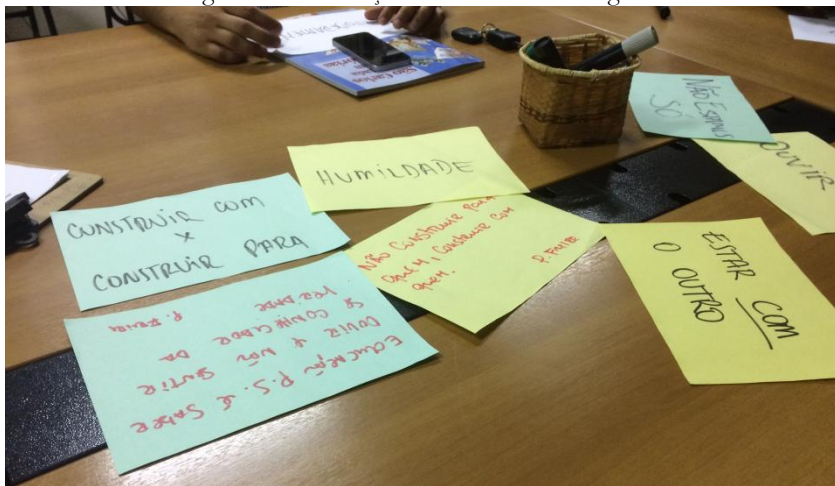 NÃO ESTAMOS
SÓ
OUVIR
HUMILDADE
CONSTRUIR COM
X
CONSTRUIR PARA
NÃO CONSTRUIR PARA
QUEM, CONSTRUIR COM
QUEM.
P. FREIRE
ESTAR COM
O OUTRO
EDUCAÇÃO P.S. É SABER
OUVIR Y NÃO SENTIR
SE CONHECEDOR DA
VERDADE
P. FREIRE
São Carlos